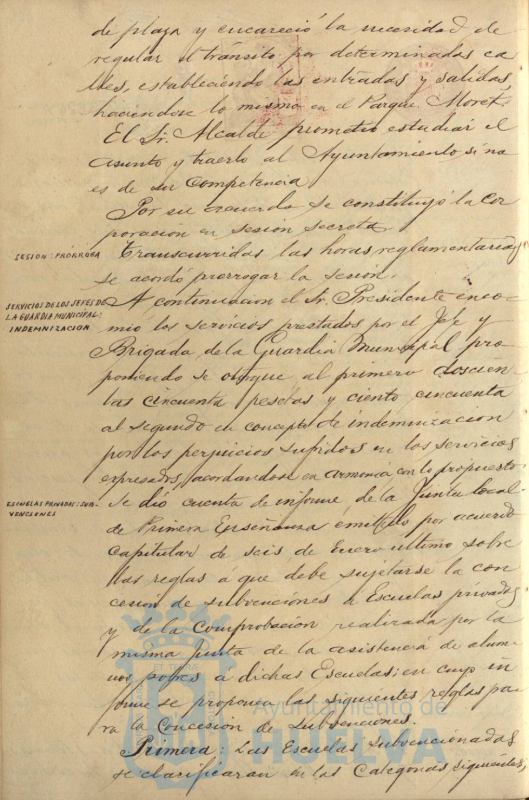 de plaza y encareció la necesidad de
regular el tránsito por determinadas ca
lles, estableciendo las entradas y salidas,
haciendose lo mismo en el Parque Moret.
El Sr. Alcalde prometió estudiar el
asunto y traerlo al Ayuntamiento si no
es de su competencia
Por su acuerdo se constituyó la Cor
poracion en sesión secreta.
SESION: PRÓRROGA
Transcurridas las horas reglamentarias
se acordó prorrogar la sesion.
SERVICIOS DE LOS JEFES DE
LA GUARDIA MUNICIPAL:
INDEMNIZACION
A continuacion el Sr. Presidente enco-
mió los servicios prestados por el Jefe y
Brigada de la Guardia Municipal pro
poniendo se otorgue al primero doscien
tas cincuenta pesetas y ciento cincuenta
al segundo en concepto de indemnizacion
por los perjuicios sufridos en los servicios
expresados, acordandose en armonía con lo propuesto.
ESCUELAS PRIVADAS: SUB-
VENCIONES
Se dió cuenta de informe de la Junta local
de Primera Enseñanza emitido por acuerdo
capitular de seis de Enero ultimo sobre
las reglas á que debe sujetarse la con
cesion de subvenciones á Escuelas privadas
y de la Comprobacion realizada por la
misma Junta de la asistencia de alum-
nos pobres á dichas Escuelas; en cuyo in
forme se proponen las siguientes reglas pa
ra la Concesion de Subvenciones.
Primera: Las Escuelas subvencionadas
se clasificaran en las Categorias siguientes,
Ayuntamiento de
HUELVA